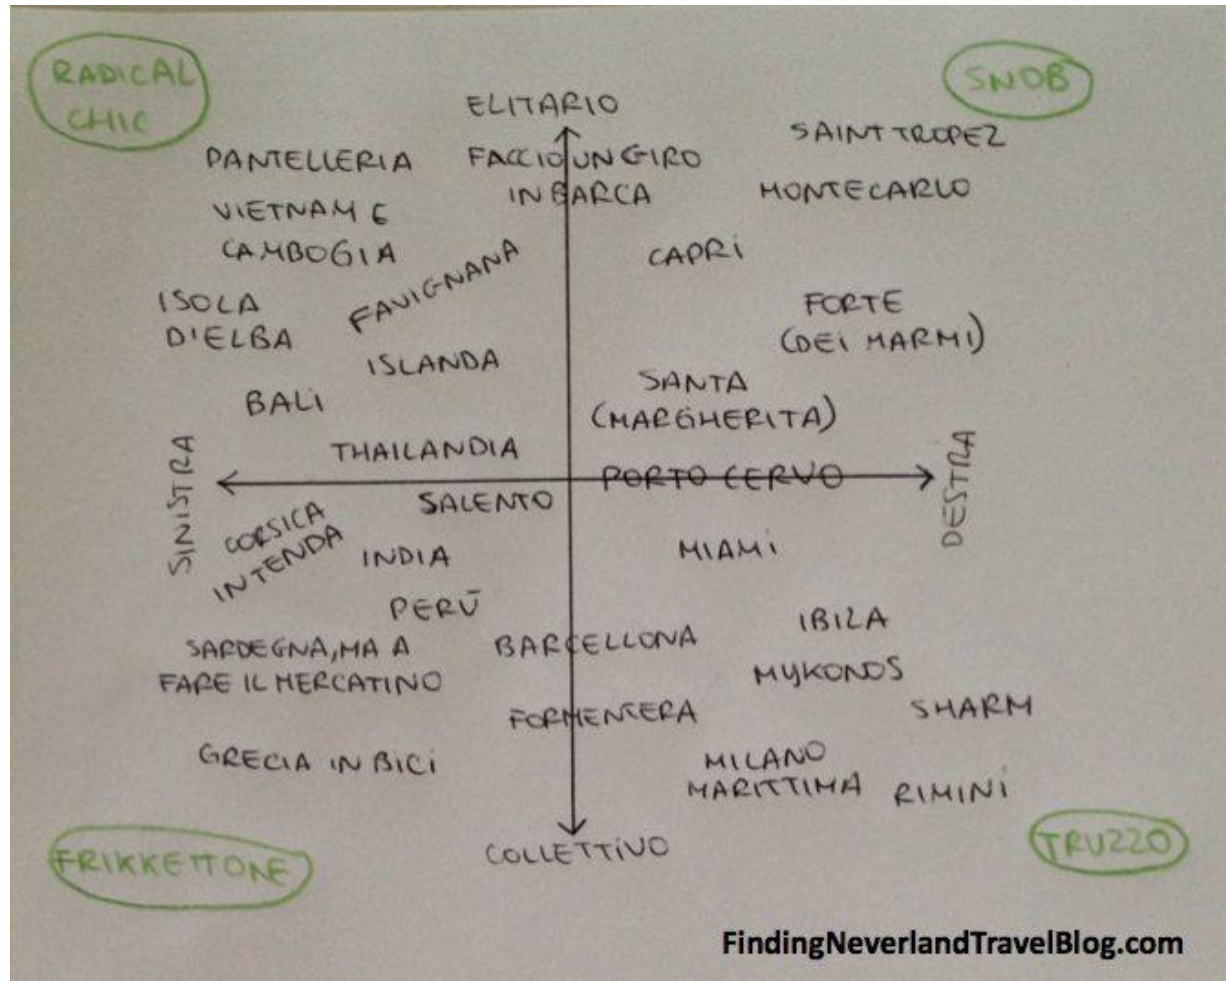 RADICAL
CHIC
SNOB
ELITARIO
SAINT TROPEZ
PANTELLERIA
FACCIO UN GIRO
IN BARCA
MONTECARLO
VIETNAM E
CAMBOGIA
CAPRI
FAVIGNANA
ISOLA
D'ELBA
FORTE
(DEI MARMI)
ISLANDA
SANTA
(MARGHERITA)
BALI
THAILANDIA
SINISTRA
PORTO CERVO
DESTRA
SALENTO
CORSICA
IN TENDA
INDIA
MIAMI
PERÙ
IBIZA
SARDEGNA, MA A
FARE IL MERCATINO
BARCELLONA
MYKONOS
SHARM
FORMENTERA
GRECIA IN BICI
MILANO
MARITTIMA
RIMINI
COLLETTIVO
FRIKKETTONE
TRUZZO
FindingNeverlandTravelBlog.com